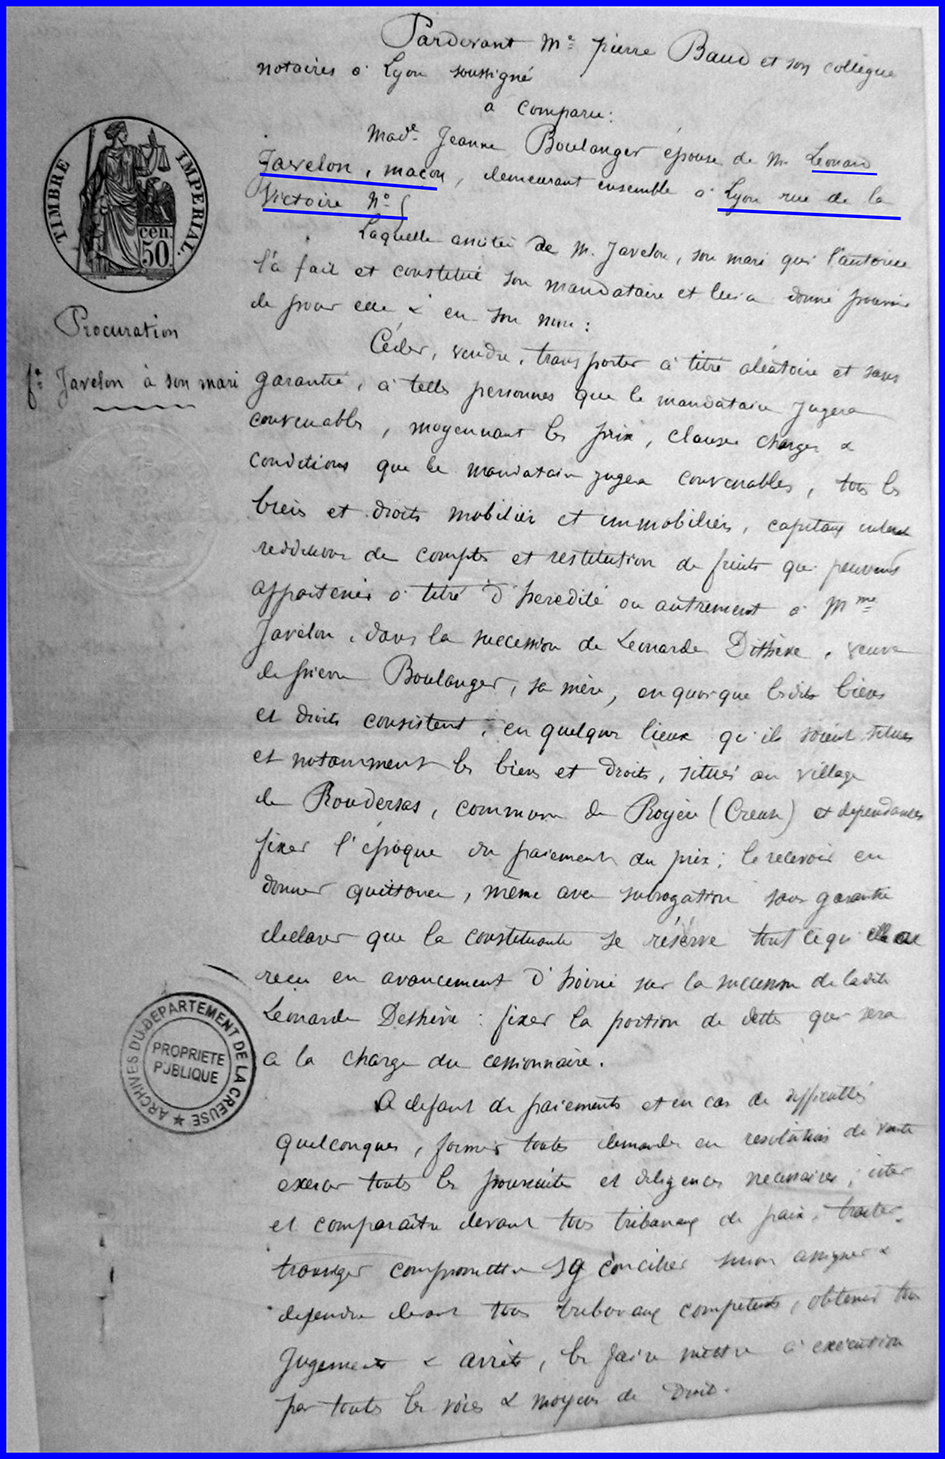 Pardevant Me pierre Baud et son collègue
notaires à Lyon soussigné
a comparu:
Made Jeanne Boulanger épouse de M. Leonard
Javelon, maçon, demeurant ensemble à Lyon rue de la
Victoire No
Laquelle assitée de M. Javelon, son mari qui l'autorise
l'a fait et constitué son mandataire et lui a donné pouvoir
de pour elle & en son nom:
Céder, vendre, transporter à titre aléatoire et sans
garantie, à telles personnes que le mandataire jugera
convenables, moyennant les prix, clauses charges &
conditions que le mandataire jugera convenables, tous les
biens et droits mobiliers et immobiliers, capitaux intérêts
reddition de comptes et restitution de fruits qui peuvent
appartenir à titre d'hérédité ou autrement à Mme
Javelon, dans la succession de Leonarde, veuve
de pierre Boulanger, sa mère, en quoi que lesdits biens
et droits consistent, en quelques lieux qu'ils soient situés
et notamment les biens et droits, situés au village
de, commune de Royère (Creuse) et dépendances
fixer l'époque du paiement du prix; le recevoir en
donner quittance, même avec subrogation sans garantie
déclarer que la constituante se réserve tout ce qu'elle a
reçu en avancement d'hoirie sur la succession de ladite
Léonarde: fixer la portion de dette qui sera
a la charge du cessionnaire.
A défaut de paiements et en cas de difficultés
quelconques, former toutes demandes en résolution de vente
exercer toutes les poursuites et diligences nécessaires, citer
et comparaître devant tous tribunaux de paix, traiter,
transiger compromettre se concilier sinon assigner &
défendre devant tous tribunaux compétents, obtenir tous
jugements & arrêts, les faire mettre à exécution
par toutes les voies & moyens de Droit.
TIMBRE IMPERIAL.
50 cen.
Procuration
fe Javelon à son mari
ARCHIVES DU DEPARTEMENT DE LA CREUSE
PROPRIETE
PUBLIQUE